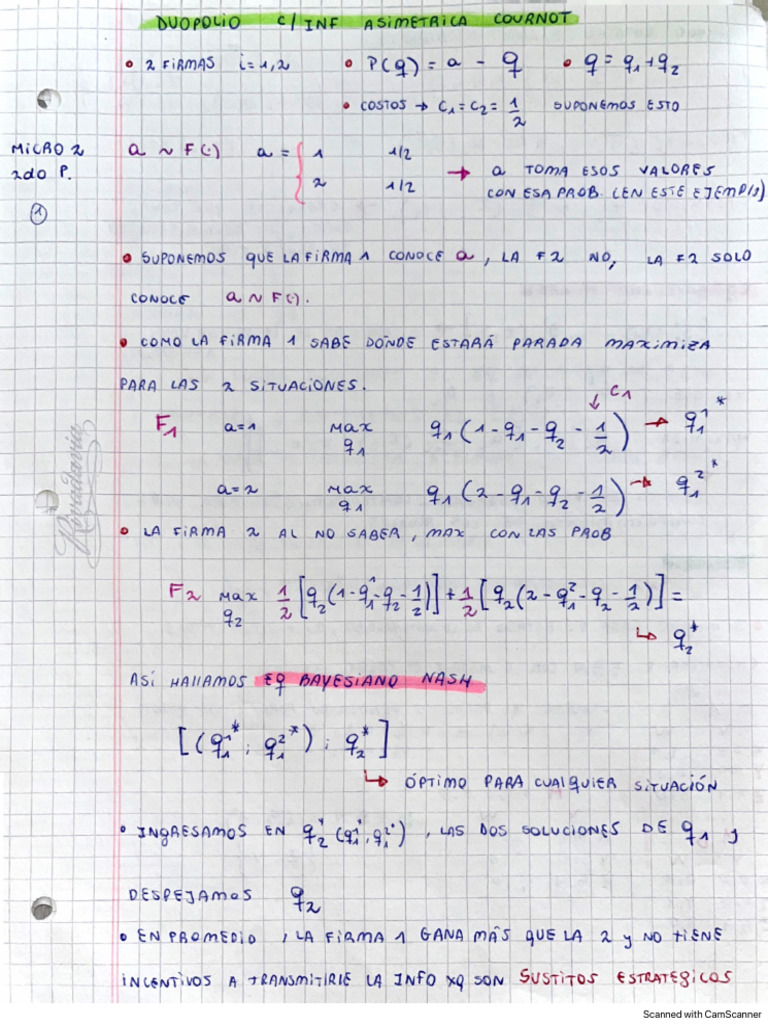 DUOPOLIO C/ INF ASIMETRICA COURNOT
• 2 FIRMAS i=1,2 • P(q) = a - q • q = q₁+q₂
• COSTOS → C₁=C₂= 1/2 SUPONEMOS ESTO
MICRO 2
2do P.
①
a ~ F(·) a = { 1 1/2
2 1/2
→ a TOMA ESOS VALORES
CON ESA PROB. (EN ESTE EJEMPLO)
• SUPONEMOS QUE LA FIRMA 1 CONOCE a, LA F2 NO, LA F2 SOLO
CONOCE a ~ F(·).
• COMO LA FIRMA 1 SABE DÓNDE ESTARÁ PARADA MAXIMIZA
PARA LAS 2 SITUACIONES.
↓ C₁
F₁ a=1 MAX q₁ q₁(1-q₁-q₂-1/2) → q₁¹*
a=2 MAX q₁ q₁(2-q₁-q₂-1/2) → q₁²*
Rivadavia
• LA FIRMA 2 AL NO SABER, MAX CON LAS PROB
F₂ MAX q₂ 1/2[q₂(1-q₁¹-q₂-1/2)]+1/2[q₂(2-q₁²-q₂-1/2)]=
↳ q₂*
ASÍ HALLAMOS EQ BAYESIANO NASH
[(q₁¹*; q₁²*); q₂*]
↳ ÓPTIMO PARA CUALQUIER SITUACIÓN
• INGRESAMOS EN q₂*(q₁¹*, q₁²*), LAS DOS SOLUCIONES DE q₁ y
DESPEJAMOS q₂
• EN PROMEDIO, LA FIRMA 1 GANA MÁS QUE LA 2 y NO TIENE
INCENTIVOS A TRANSMITIRLE LA INFO XQ SON SUSTITOS ESTRATEGICOS
Scanned with CamScanner